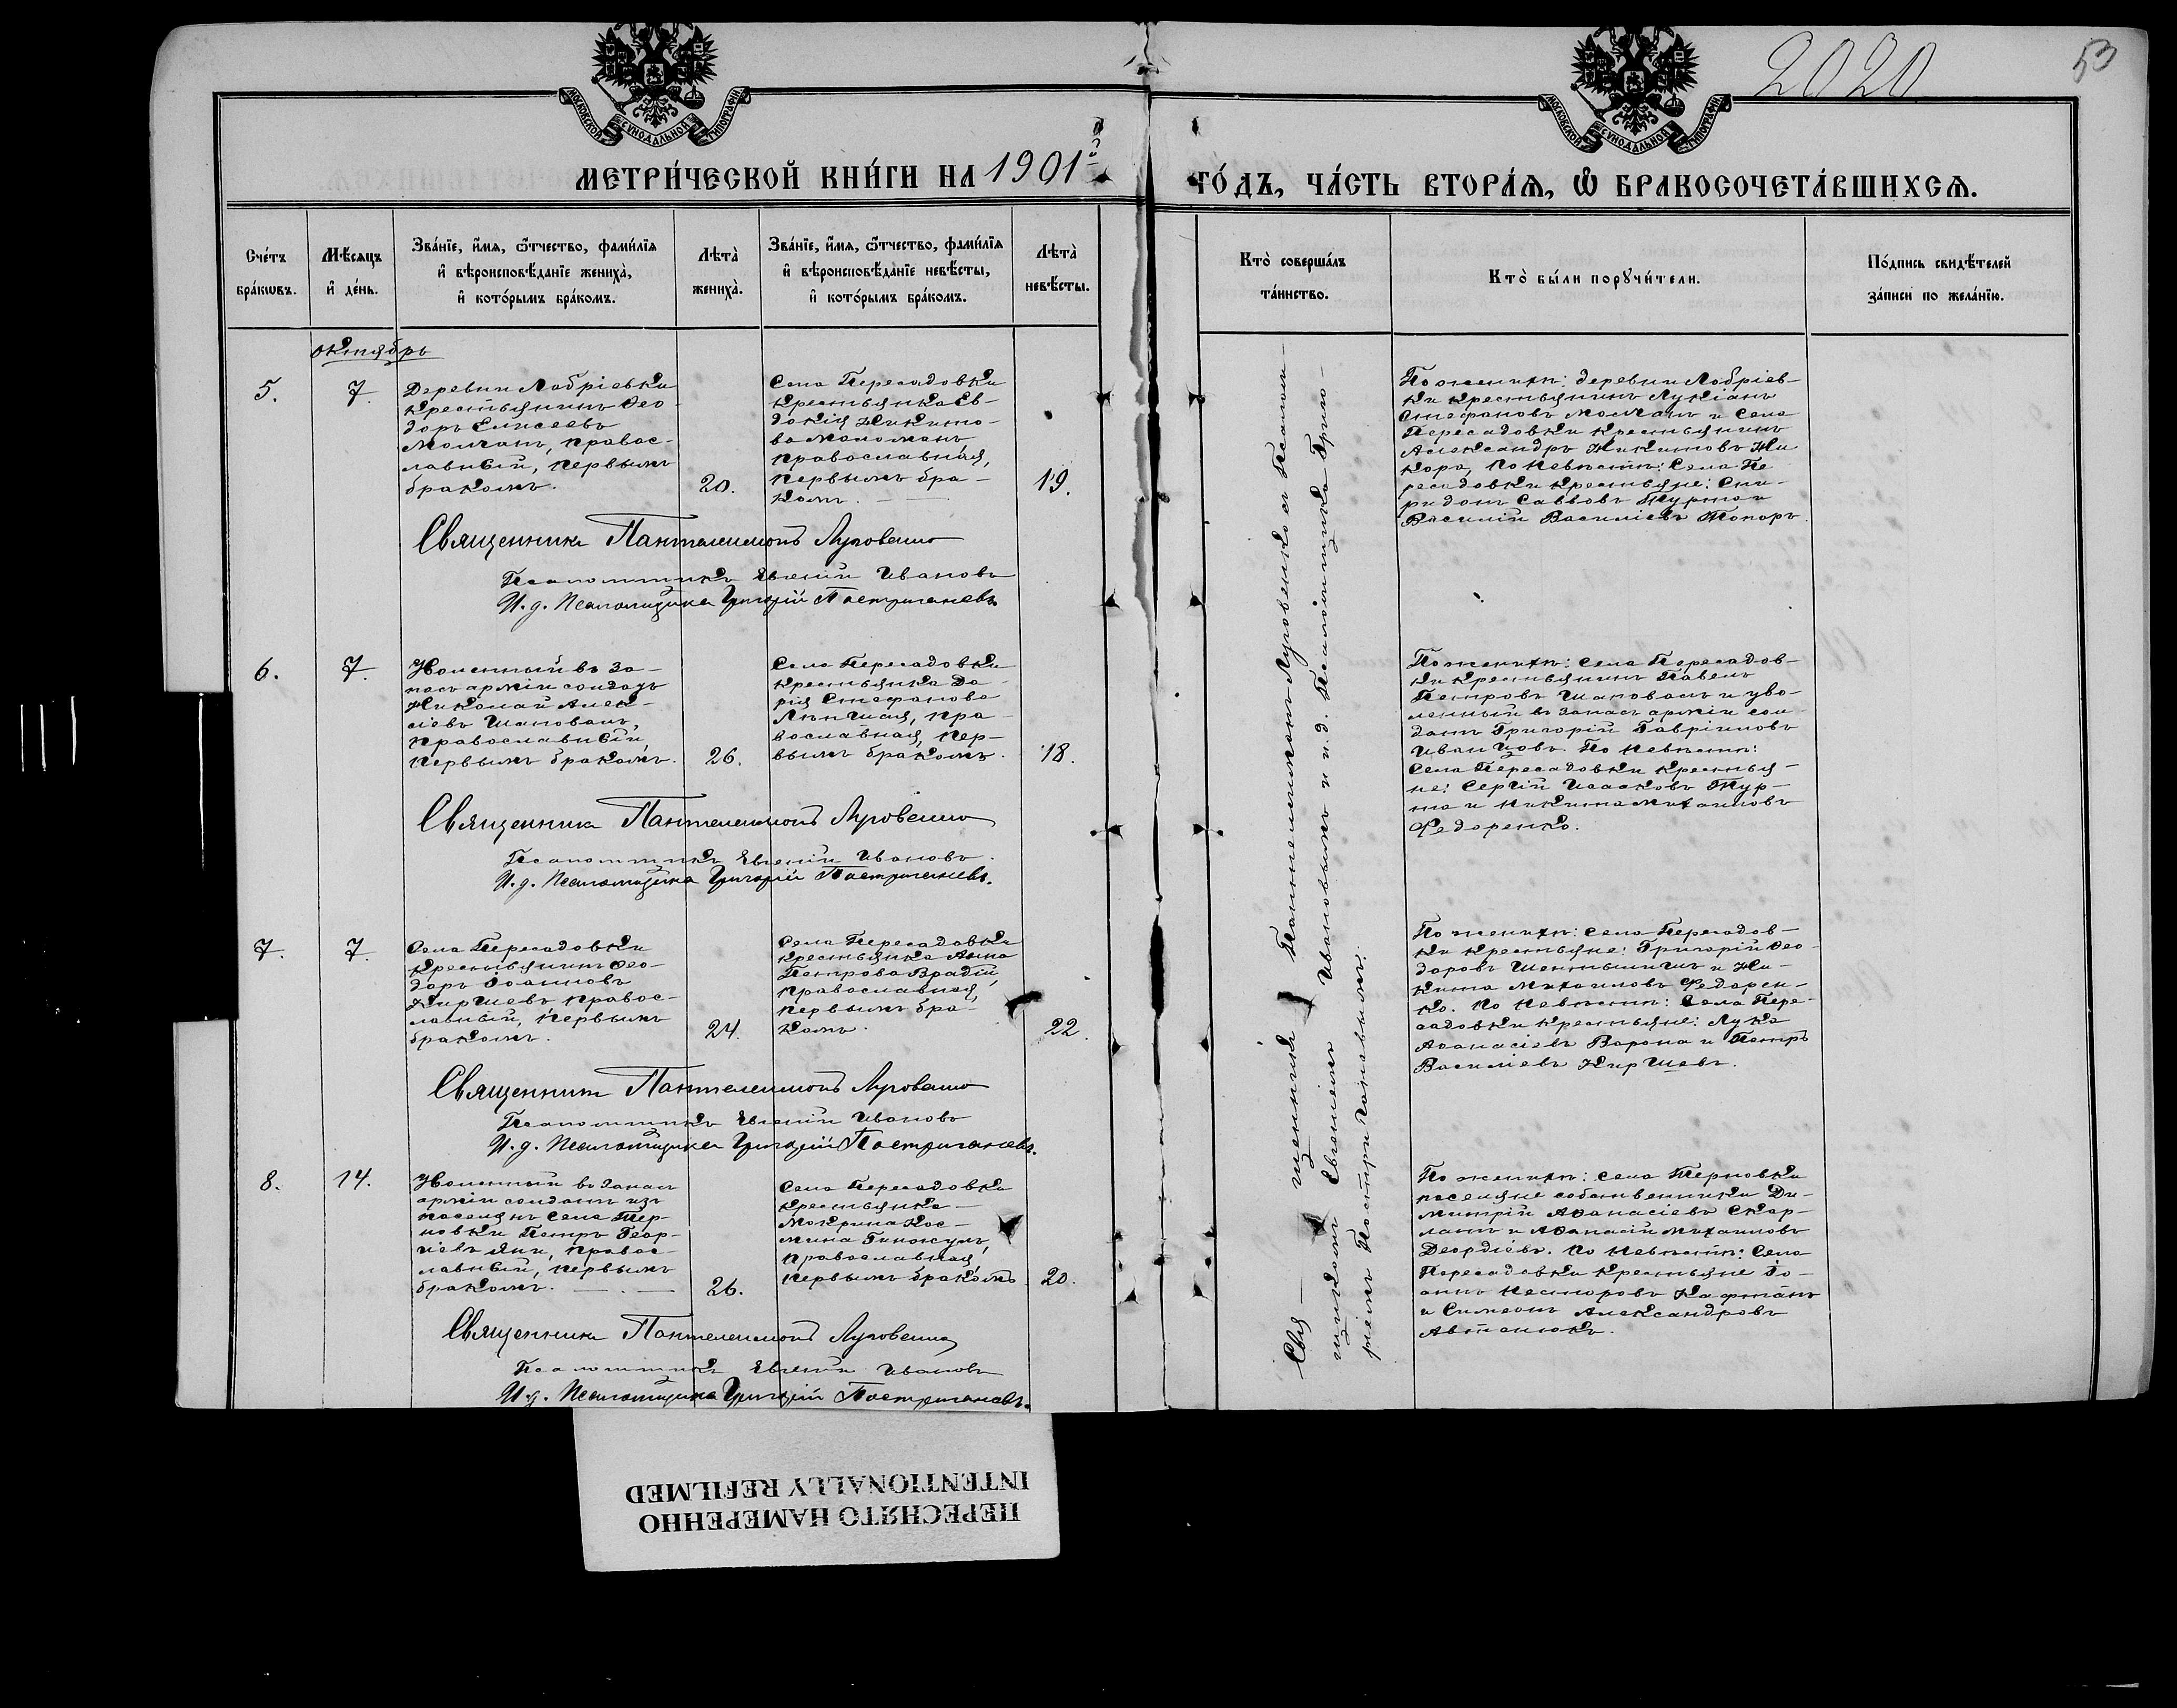 2020
53
МОСКОВСКОЙ СѴНОДАЛЬНОЙ ТИПОГРАФІИ
МОСКОВСКОЙ СѴНОДАЛЬНОЙ ТИПОГРАФІИ
МЕТРИ́ЧЕСКОЙ КНИ́ГИ НА 1901й
ГО́ДЪ, ЧА́СТЬ ВТОРА́Ѧ, Ѽ БРАКОСОЧЕТА́ВШИХСѦ.
Сче́тъ бра́кѡвъ.
Мѣ́сяцъ и҆ де́нь.
Зва́нїе, и҆́мя, ѻ҆́тчество, фами́лїя
и҆ вѣроисповѣ́данїе жениха̀,
и҆ кото́рымъ бра́комъ.
Лѣта̀ жениха̀.
Зва́нїе, и҆́мя, ѻ҆́тчество, фами́лїя
и҆ вѣроисповѣ́данїе невѣ́сты,
и҆ кото́рымъ бра́комъ.
Лѣта̀ невѣ́сты.
Кто̀ соверша́лъ
та́инство.
Кто̀ бы́ли порꙋчи́тели.
По́дпись свидѣ́телей
за́писи по жела́нїю.
октябрь
5.
7
Деревни Лабріевки
крестьянинъ Ѳео-
доръ Елисеевъ
Молчанъ, правос-
лавный, первымъ
бракомъ.
20.
Села Пересадовки
крестьянка Ев-
докія Никито-
ва
православная,
первымъ бра-
комъ.
19.
По женихѣ: деревни Лабріев-
ки крестьянинъ Лукіанъ
Стефановъ Молчанъ и села
Пересадовки крестьянинъ
Александръ Никитовъ Ни
кора, по невѣстѣ: села Пе
ресадовки крестьяне: Спи-
ридонъ Саввовъ Турта и
Василій Василіевъ Топоръ.
Священникъ Пантелеимонъ Луговенко
Псаломщикъ Евгеній Ивановъ
И. д. Псаломщика Григорій Постригановъ.
6.
7.
Уволенный въ за-
пасъ арміи солдатъ
Николай Алек-
сіевъ Шаповалъ,
православный,
первымъ бракомъ.
26.
Села Пересадовки
крестьянка Да-
рія Стефанова
пра-
вославная, пер-
вымъ бракомъ.
18.
По женихѣ: села Пересадов-
ки крестьянинъ Павелъ
Петровъ Шаповалъ и уво-
ленный въ запасъ арміи сол-
датъ Григорій Гавріиловъ
Иванцовъ. По невѣстѣ:
села Пересадовки крестья-
не: Сергій Исааковъ Тур-
та и Никита Михаиловъ
Федоренко.
Священникъ Пантелеимонъ Луговенко
Псаломщикъ Евгеній Ивановъ.
И. д. Псаломщика Григорій Постригановъ.
7.
7.
Села Пересадовки
крестьянинъ Ѳео-
доръ Іоанновъ
Киршевъ правос-
лавный, первымъ
бракомъ.
24.
Села Пересадовки
крестьянка Анна
Петрова Врадій,
православная,
первымъ бра-
комъ.
22.
По женихѣ: села Пересадов-
ки крестьяне: Григорій Ѳео-
доровъ и Ни-
кита Михаиловъ Федорен-
ко. По невѣстѣ: села Пере-
садовки крестьяне: Лука
Аѳанасіевъ Ворона и Петръ
Василіевъ Киршевъ.
Священникъ Пантелеимонъ Луговенко
Псаломщикъ Евгеній Ивановъ
И. д. Псаломщика Григорій Постригановъ.
8.
14.
Уволенный въ запасъ
арміи солдатъ изъ
поселянъ села Тер-
новки Петръ Геор-
гіевъ Яни, правос-
лавный, первымъ
бракомъ.
26.
Села Пересадовки
крестьянка
Макрина Кос-
мина
православная,
первымъ бракомъ
20.
По женихѣ: села Терновки
поселяне собственники Ди-
митрій Аѳанасіевъ Скар-
латъ и Аѳанасій Михаиловъ
Деордіевъ. По невѣстѣ: села
Пересадовки крестьяне Іо-
аннъ Несторовъ Кафтанъ
и Симеонъ Александровъ
Автенюкъ.
Священникъ Пантелеимонъ Луговенко
Псаломщикъ Евгеній Ивановъ
И. д. Псаломщика Григорій Постригановъ.
Священникъ Пантелеимонъ Луговенко съ Псалом-
щикомъ Евгеніемъ Ивановымъ и и. д. Псаломщика Григо-
ріемъ Постригановымъ.
ПЕРЕСНЯТО НАМЕРЕННО
INTENTIONALLY REFILMED